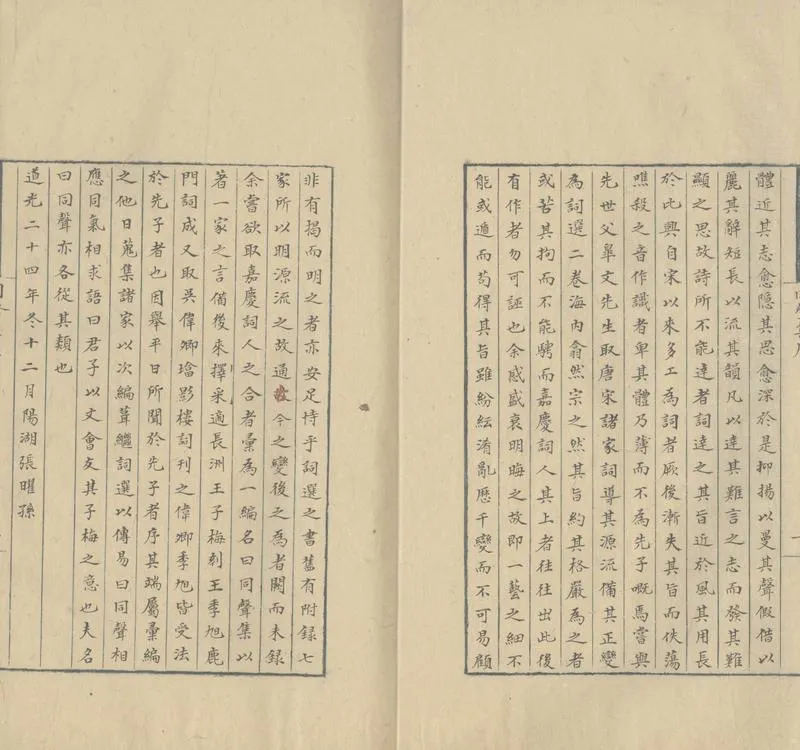 體近其志愈隱其思愈深於是抑揚以曼其聲假借以
麗其辭短長以流其韻凡以達其難言之志而發其難
顯之思故詩所不能達者詞達之其旨近於風其用長
於比興自宋以來多工為詞者厥後漸失其旨而佚蕩
噍殺之音作識者卑其體乃薄而不為先子嘅焉嘗與
先世父皋文先生取唐宋諸家詞導其源流備其正變
為詞選二卷海內翕然宗之然其旨約其格嚴為之者
或苦其拘而不能騁而嘉慶詞人其上者往往出此後
有作者勿可誣也余感盛衰明晦之故即一藝之細不
能或適而苟得其旨雖紛紜淆亂歷千變而不可易顧
非有揭而明之者亦安足恃乎詞選之書舊有附錄七
家所以明源流之故通古今之變後之為者闕而未錄
余嘗欲取嘉慶詞人之合者彙為一編名曰同聲集以
著一家之言備後來擇采適長洲王子梅刻王季旭鹿
門詞成又取吳偉卿瑲影樓詞刊之偉卿季旭皆受法
於先子者也因舉平日所聞於先子者序其端屬彙編
之他日蒐集諸家以次編葺繼詞選以傳易曰同聲相
應同氣相求語曰君子以文會友其子梅之意也夫名
曰同聲亦各從其類也
道光二十四年冬十二月陽湖張曜孫